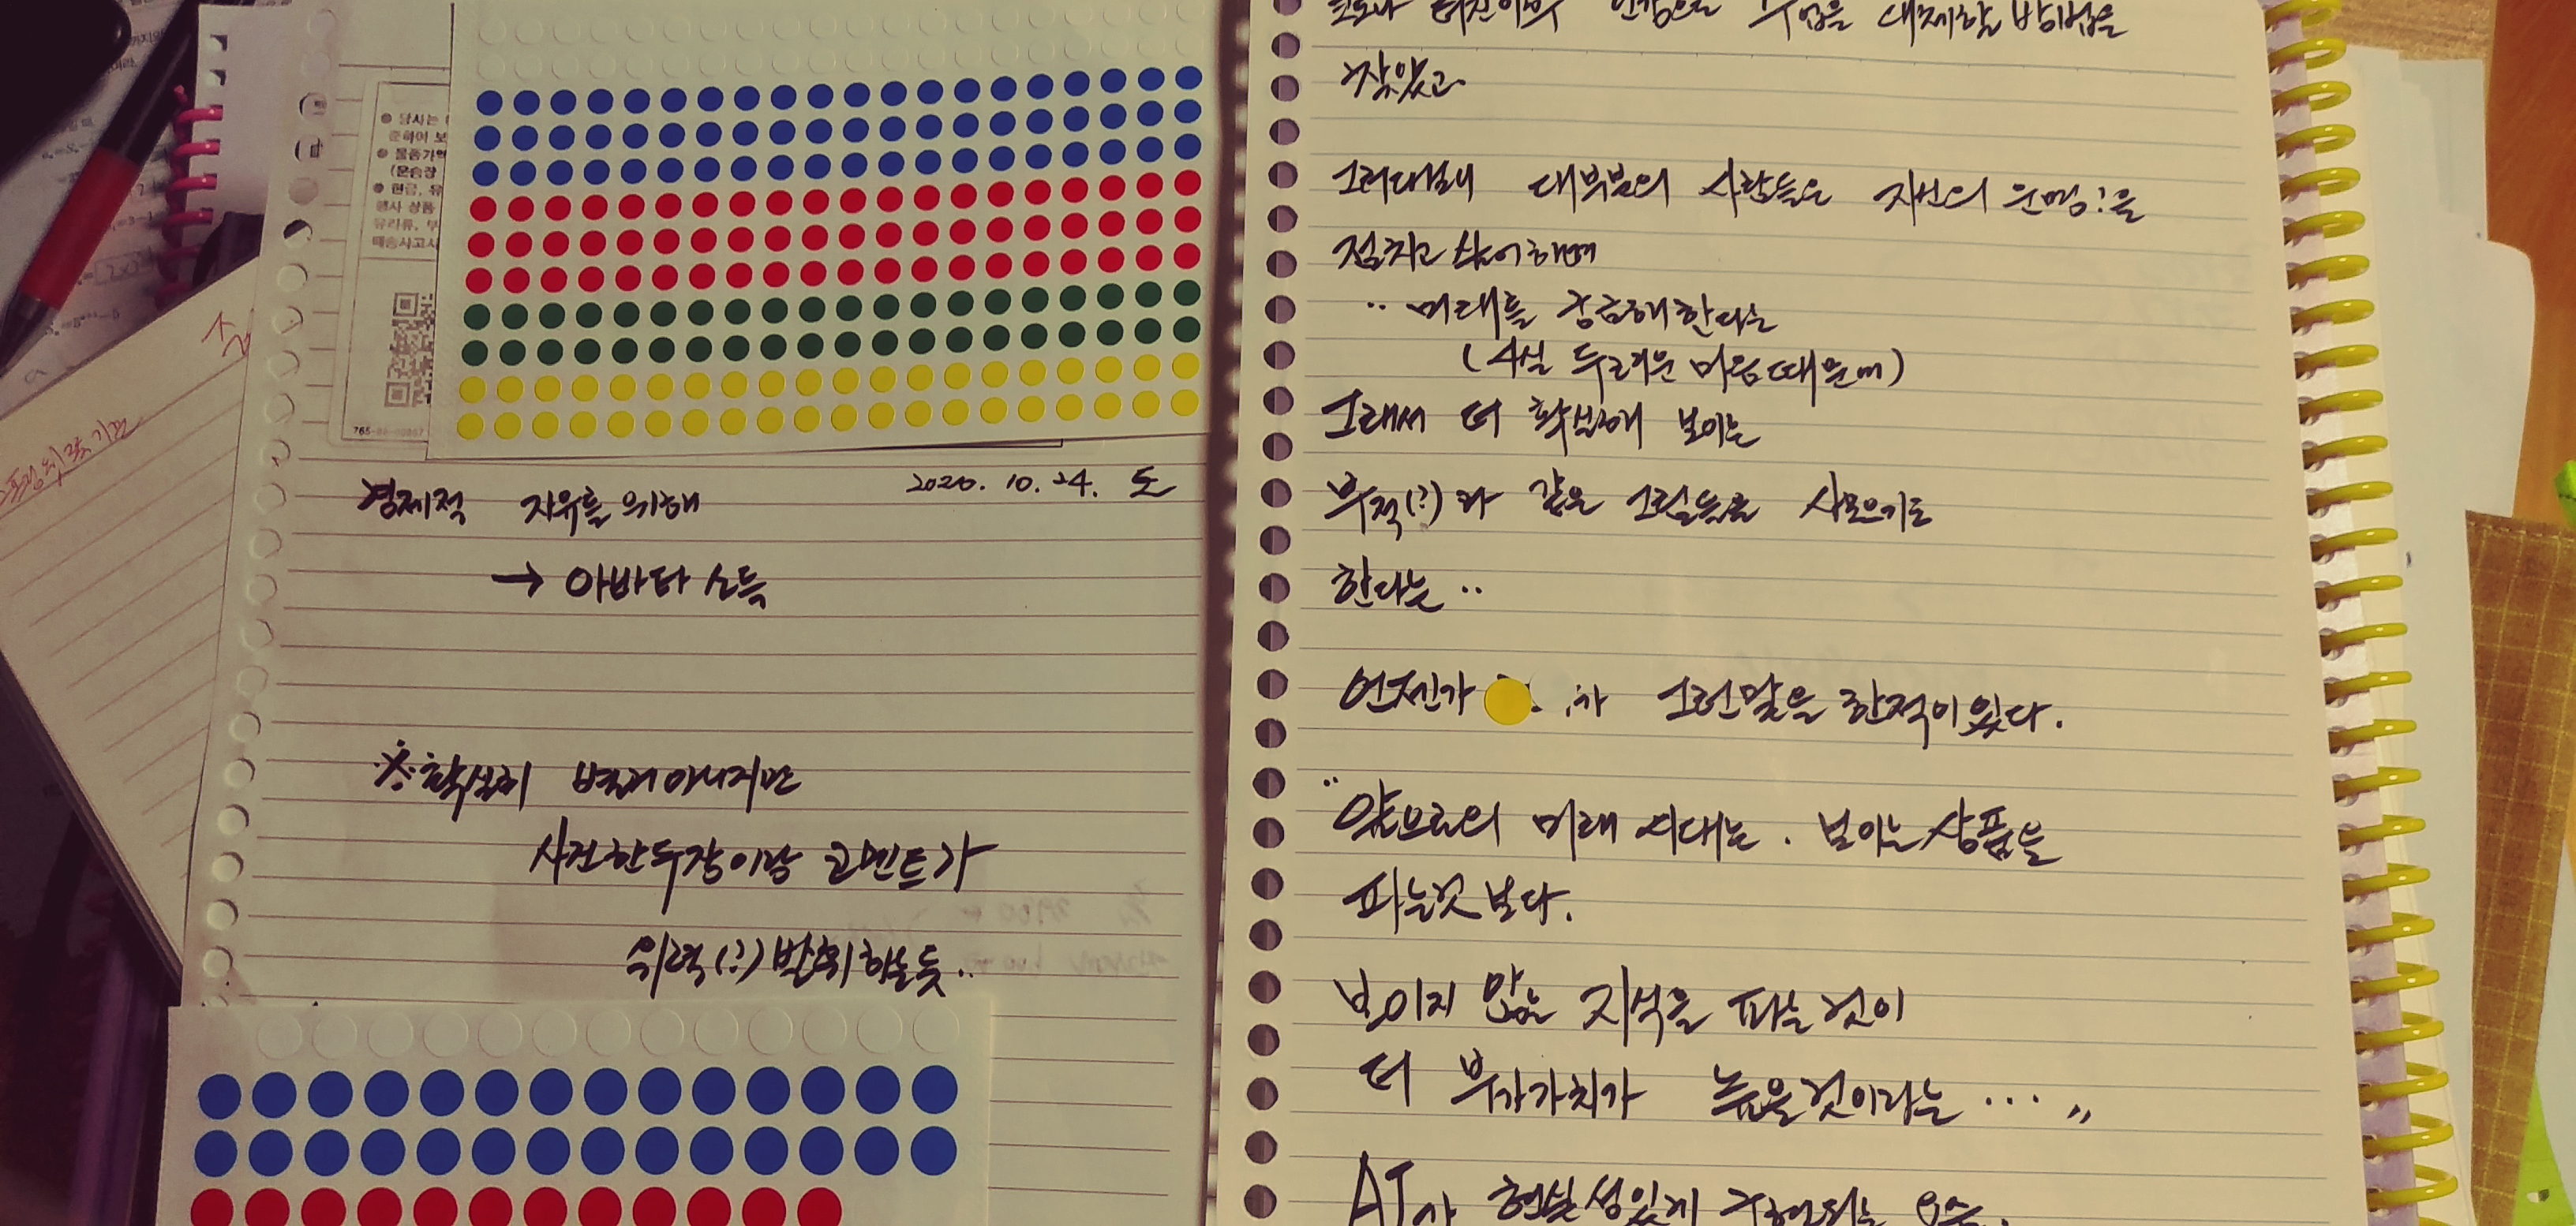 경제적 자유를 위해
2020. 10. 24. 토
→ 아바타 소득
※ 확실히 별거 아니지만
사진 한두장이랑 코멘트가
위력(?) 발휘하는 듯..
765-
당사는
준하여 보
물품가액
(운송장
현금, 유
행사 상품
유리류, 부
배송사고시
수업을 대체할 방법을
찾았고
그러다보니 대부분의 사람들은 자신의 운명?을
점치고 싶어하며
.. 미래를 궁금해한다는
(사실 두려운 마음 때문에)
그래서 더 확실해 보이는
부적(?)과 같은 그림들을 사모으기도
한다는 ..
언젠가 가 그런말을 한적이 있다.
"앞으로의 미래 시대는. 보이는 상품을
파는것 보다.
보이지 않는 지식을 파는 것이
더 부가가치가 높을것이라는 ... "
AI가 현실성있게 구현되는 요즘.